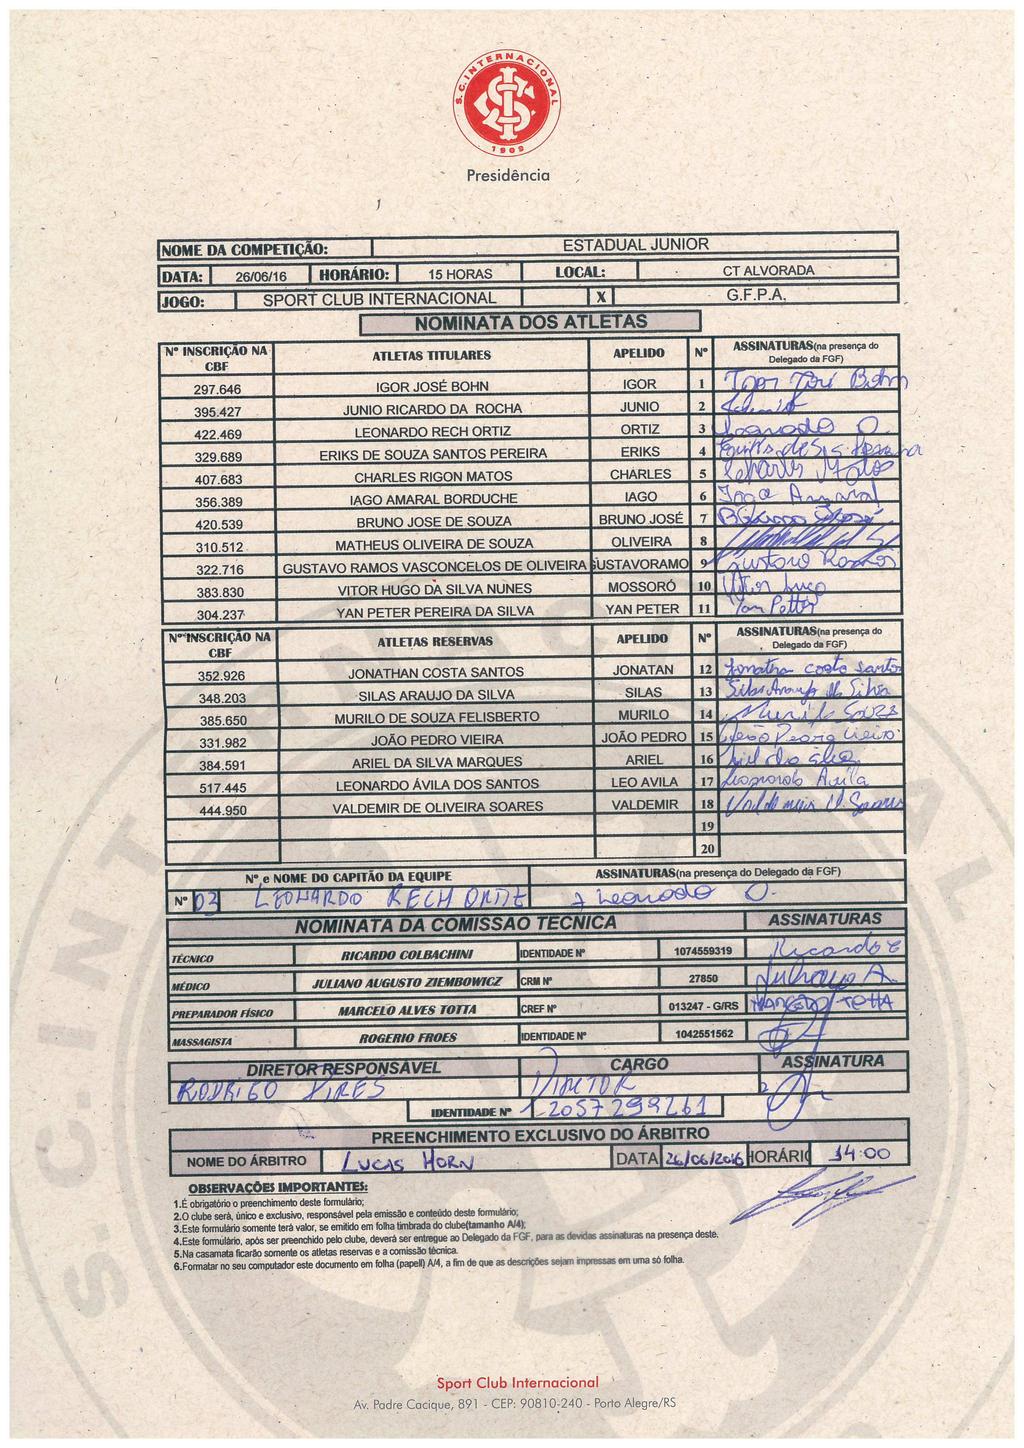 S.C. INTERNACIONAL
1909
Presidência
NOME DA COMPETIÇÃO: ESTADUAL JUNIOR
DATA: 26/06/16 HORÁRIO: 15 HORAS LOCAL: CT ALVORADA
JOGO: SPORT CLUB INTERNACIONAL X G.F.P.A.
NOMINATA DOS ATLETAS
Nº INSCRIÇÃO NA CBF ATLETAS TITULARES APELIDO Nº ASSINATURAS(na presença do Delegado da FGF)
297.646 IGOR JOSÉ BOHN IGOR 1 Igor José Bohn
395.427 JUNIO RICARDO DA ROCHA JUNIO 2
422.469 LEONARDO RECH ORTIZ ORTIZ 3 Leonardo O.
329.689 ERIKS DE SOUZA SANTOS PEREIRA ERIKS 4 Eriks de S. S. Pereira
407.683 CHARLES RIGON MATOS CHARLES 5 Charles Matos
356.389 IAGO AMARAL BORDUCHE IAGO 6 Iago Amaral
420.539 BRUNO JOSE DE SOUZA BRUNO JOSÉ 7 Bruno José
310.512 MATHEUS OLIVEIRA DE SOUZA OLIVEIRA 8
322.716 GUSTAVO RAMOS VASCONCELOS DE OLIVEIRA GUSTAVORAMO 9 Gustavo Ramos
383.830 VITOR HUGO DA SILVA NUNES MOSSORÓ 10 Vitor hugo
304.237 YAN PETER PEREIRA DA SILVA YAN PETER 11 Yan Petter
Nº INSCRIÇÃO NA CBF ATLETAS RESERVAS APELIDO Nº ASSINATURAS(na presença do Delegado da FGF)
352.926 JONATHAN COSTA SANTOS JONATAN 12 Jonathan costa santos
348.203 SILAS ARAUJO DA SILVA SILAS 13 Silas Araujo da Silva
385.650 MURILO DE SOUZA FELISBERTO MURILO 14 Murilo Souza
331.982 JOÃO PEDRO VIEIRA JOÃO PEDRO 15 João Pedro Vieira
384.591 ARIEL DA SILVA MARQUES ARIEL 16 Ariel da silva
517.445 LEONARDO ÁVILA DOS SANTOS LEO AVILA 17 Leonardo Avila
444.950 VALDEMIR DE OLIVEIRA SOARES VALDEMIR 18 Valdemir O. Soares
19
20
Nº e NOME DO CAPITÃO DA EQUIPE ASSINATURAS(na presença do Delegado da FGF)
Nº 03 LEONARDO RECH ORTIZ Leonardo O.
NOMINATA DA COMISSAO TECNICA ASSINATURAS
TÉCNICO RICARDO COLBACHINI IDENTIDADE Nº 1074559319 Ricardo C
MÉDICO JULIANO AUGUSTO ZIEMBOWICZ CRM Nº 27850 Juliano A.
PREPARADOR FÍSICO MARCELO ALVES TOTTA CREF Nº 013247 - G/RS MARCELO TOTTA
MASSAGISTA ROGERIO FROES IDENTIDADE Nº 1042551562
DIRETOR RESPONSÁVEL CARGO ASSINATURA
RODRIGO PIRES DIRETOR
IDENTIDADE Nº 2057299261
PREENCHIMENTO EXCLUSIVO DO ÁRBITRO
NOME DO ÁRBITRO LUCAS HORN DATA 26/06/2016 HORÁRIO 14:00
OBSERVAÇÕES IMPORTANTES:
1.É obrigatório o preenchimento deste formulário;
2.O clube será, único e exclusivo, responsável pela emissão e conteúdo deste formulário;
3.Este formulário somente terá valor, se emitido em folha timbrada do clube(tamanho A/4);
4.Este formulário, após ser preenchido pelo clube, deverá ser entregue ao Delegado da FGF, para as devidas assinaturas na presença deste.
5.Na casamata ficarão somente os atletas reservas e a comissão técnica.
6.Formatar no seu computador este documento em folha (papel) A/4, a fim de que as descrições sejam impressas em uma só folha.
Sport Club Internacional
Av. Padre Cacique, 891 - CEP: 90810-240 - Porto Alegre/RS